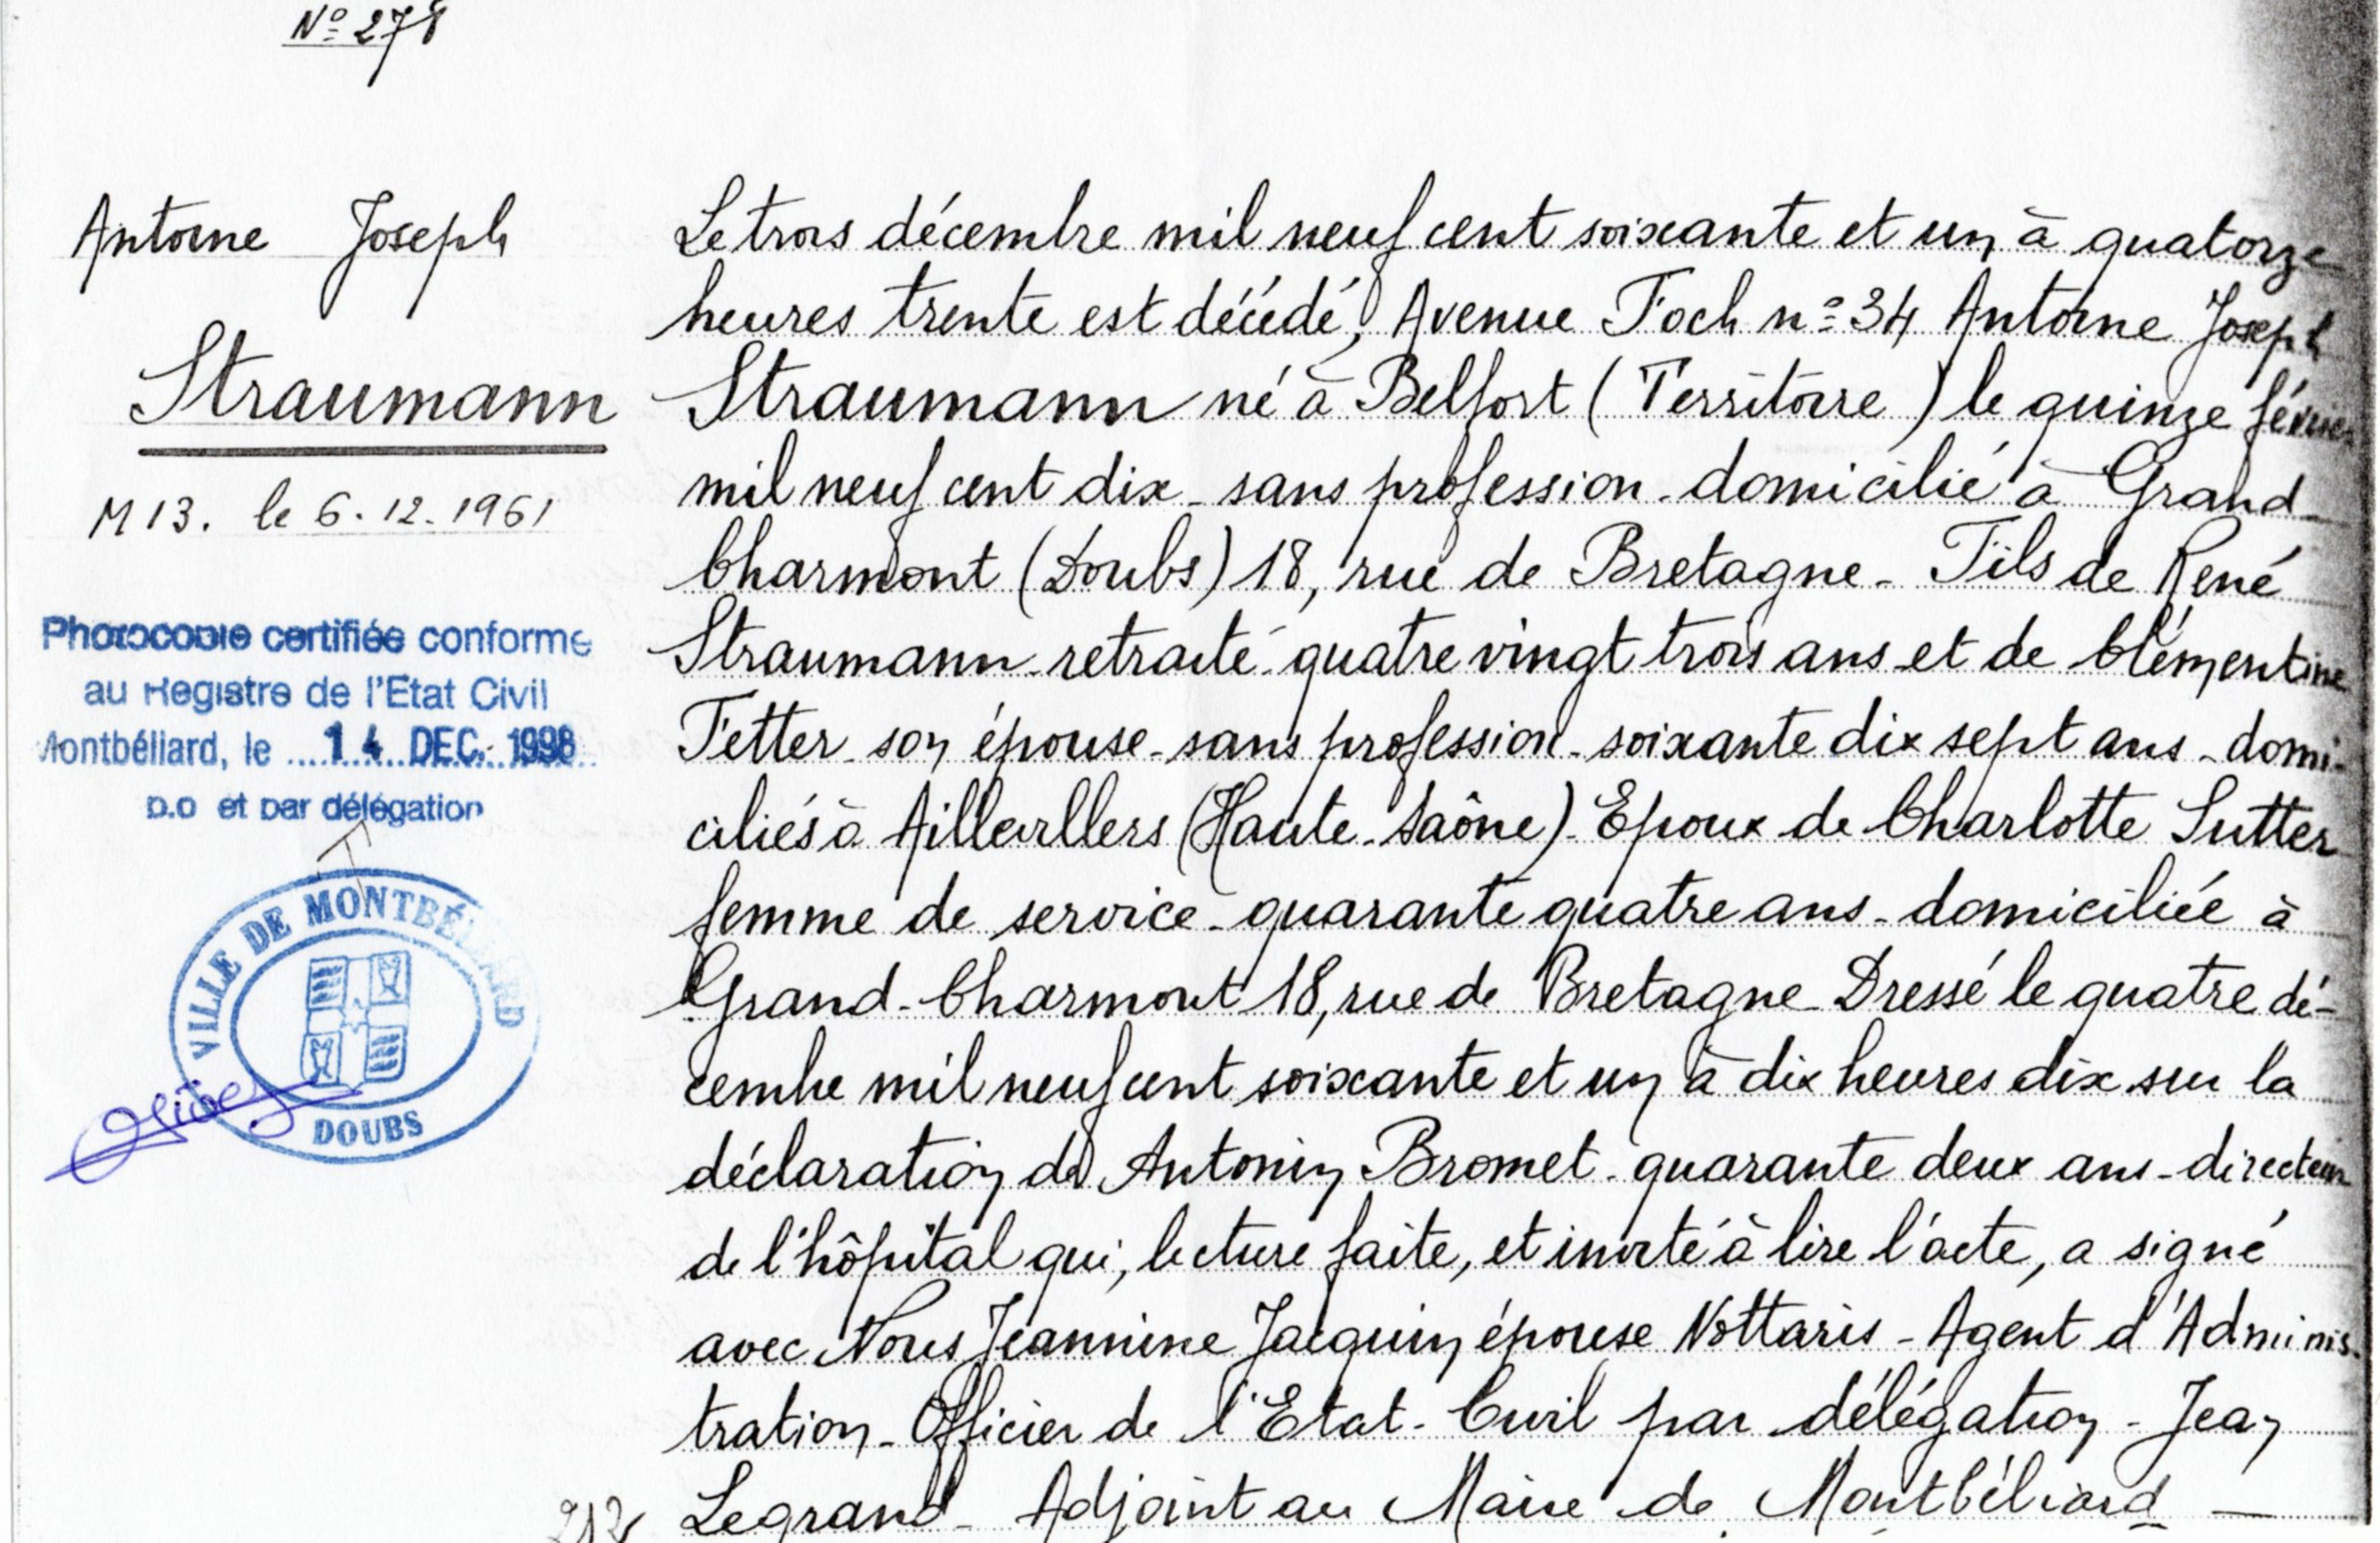 Nº 278
Antoine Joseph
Straumann
M 13. le 6.12.1961
Photocopie certifiée conforme
au Registre de l'Etat Civil
Montbéliard, le ....14 DEC. 1998
P.O et par délégation
VILLE DE MONTBÉLIARD
DOUBS
Le trois décembre mil neuf cent soixante et un à quatorze
heures trente est décédé, Avenue Foch nº 34 Antoine Joseph
Straumann né à Belfort (Territoire) le quinze février
mil neuf cent dix - sans profession - domicilié à Grand-
Charmont (Doubs) 18, rue de Bretagne - Fils de René
Straumann - retraité - quatre vingt trois ans et de Clémentine
Fetter son épouse - sans profession - soixante dix sept ans - domi-
ciliés à Aillevillers (Haute-Saône) - Epoux de Charlotte Sutter
femme de service - quarante quatre ans - domiciliée à
Grand-Charmont 18, rue de Bretagne - Dressé le quatre dé-
cembre mil neuf cent soixante et un à dix heures dix sur la
déclaration de Antonin Bromet - quarante deux ans - directeur
de l'hôpital qui, lecture faite, et invité à lire l'acte, a signé
avec Nous Jeannine Jacquin épouse Nottaris - Agent d'Adminis-
tration - Officier de l'Etat-Civil par délégation - Jean
Legrand - Adjoint au Maire de Montbéliard -